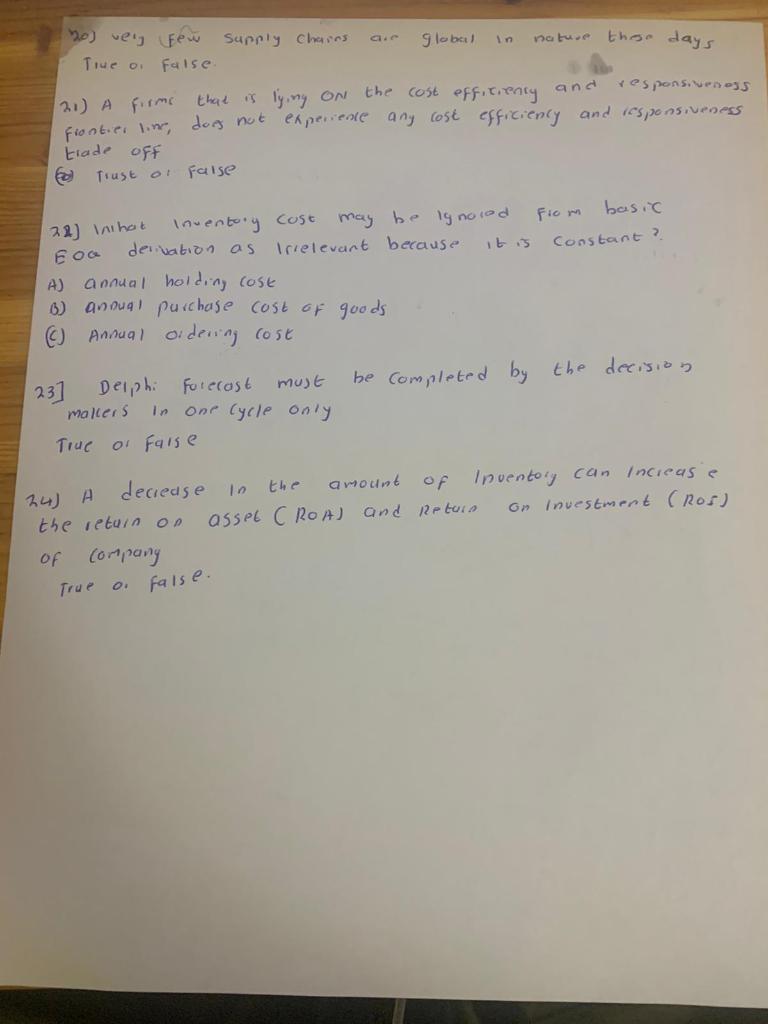 20) very few supply chains are global in nature these days
True or False.
21) A firms that is lying ON the cost efficiency and responsiveness
frontier line, does not experience any cost efficiency and responsiveness
trade off
Trust or False
22] What Inventory cost may be Ignored From basic
EOQ derivation as Irrelevant because it is constant?
A) annual holding cost
B) annual purchase cost of goods
(C) Annual ordering cost
23] Delphi Forecast must be completed by the decision
makers In one Cycle only
True or False
24) A decrease in the amount of Inventory can Increase
the return on asset (ROA) and Return on Investment (ROI)
of Company
True or False.